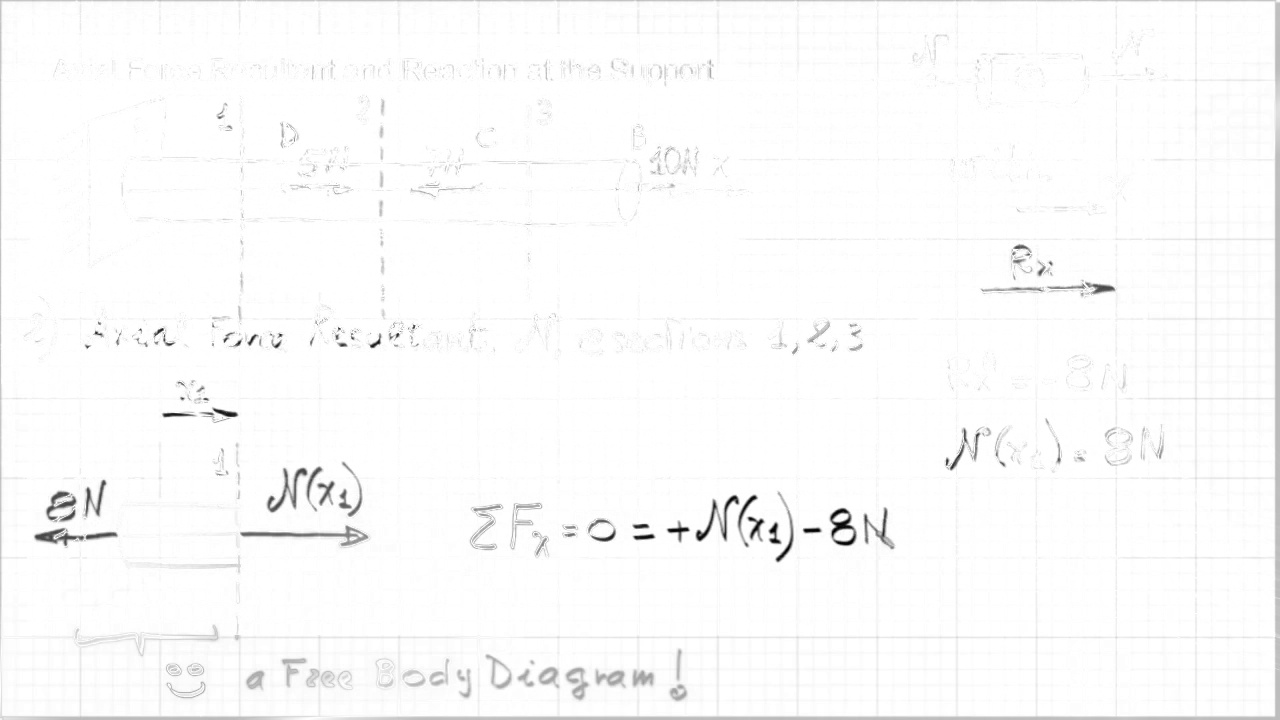 Axial Force Resultant and Reaction at the Support
N N
1 2 3
D C B
5N 7N 10N x
x
Rx
2) Axial Force Resultant, N, @ sections 1,2,3
Rx = -8N
x1
N(x1) = 8N
1
8N N(x1)
ΣFx = 0 = +N(x1) - 8N
a Free Body Diagram!